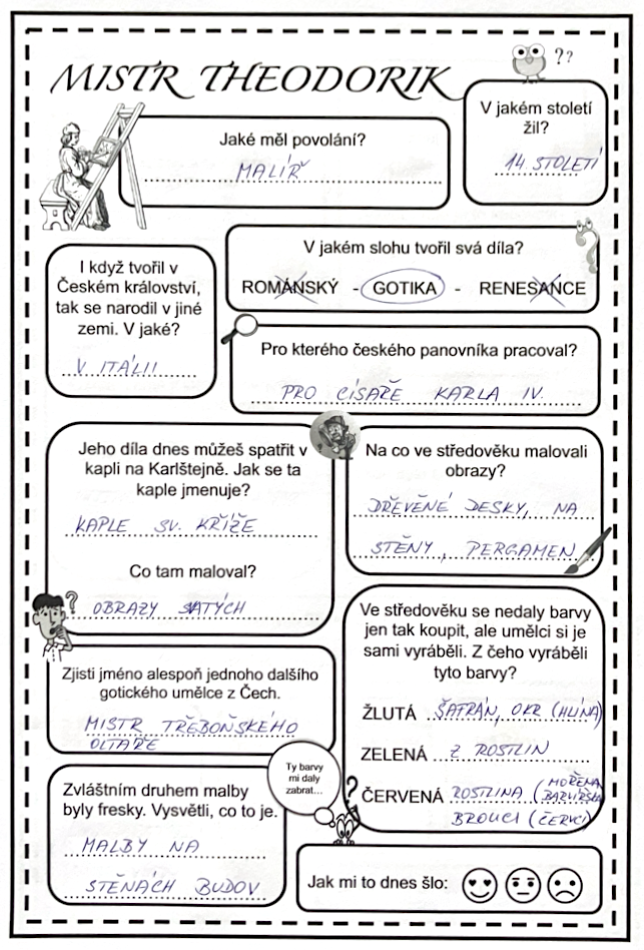 MISTR THEODORIK
??
Jaké měl povolání?
MALÍŘ
V jakém století
žil?
14. STOLETÍ
I když tvořil v
Českém království,
tak se narodil v jiné
zemi. V jaké?
V ITÁLII
V jakém slohu tvořil svá díla?
ROMÁNSKÝ - GOTIKA - RENESANCE
Pro kterého českého panovníka pracoval?
PRO CÍSAŘE KARLA IV.
Jeho díla dnes můžeš spatřit v
kapli na Karlštejně. Jak se ta
kaple jmenuje?
KAPLE SV. KŘÍŽE
Co tam maloval?
OBRAZY SATÝCH
Na co ve středověku malovali
obrazy?
DŘEVĚNÉ DESKY, NA
STĚNY, PERGAMEN
Zjisti jméno alespoň jednoho dalšího
gotického umělce z Čech.
MISTR TŘEBOŇSKÉHO
OLTÁŘE
Ve středověku se nedaly barvy
jen tak koupit, ale umělci si je
sami vyráběli. Z čeho vyráběli
tyto barvy?
ŽLUTÁ ŠAFRÁN, OKR (HLÍNA)
ZELENÁ Z ROSTLIN
ČERVENÁ ROSTLINA (MOŘENA
BARVÍŘSKÁ
BROUCI (ČERVCI)
Ty barvy
mi daly
zabrat...
?
Zvláštním druhem malby
byly fresky. Vysvětli, co to je.
MALBY NA
STĚNÁCH BUDOV
Jak mi to dnes šlo: